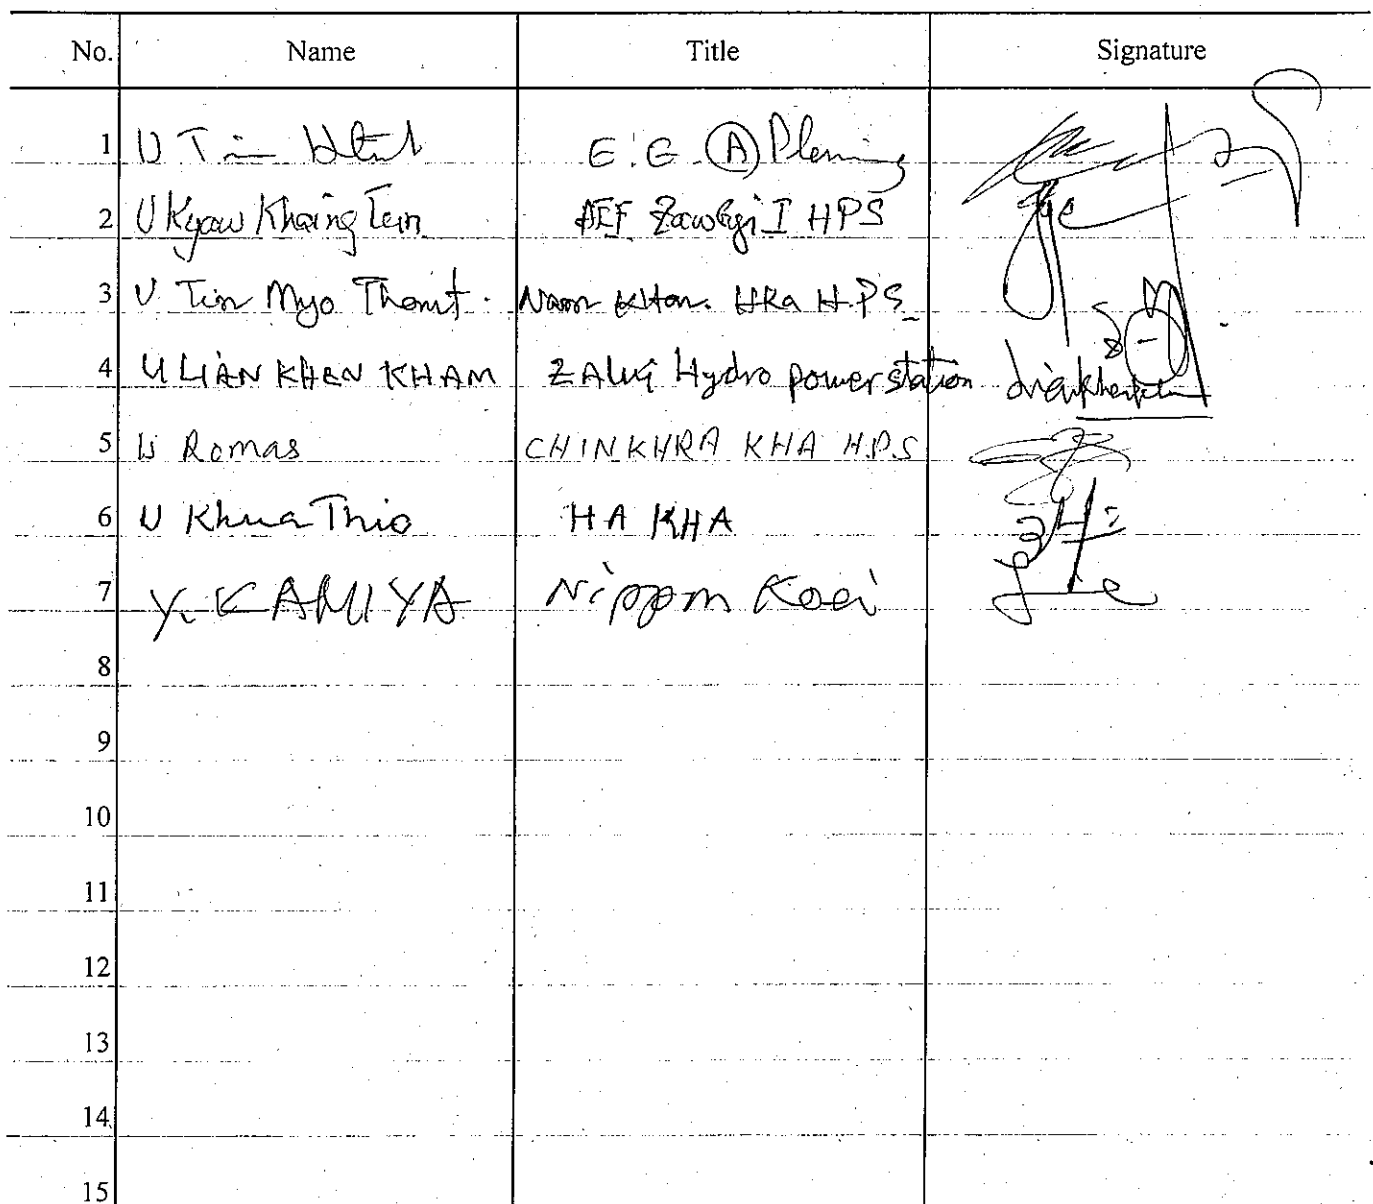 No. Name Title Signature
1 U Tin E.E (A)
2 U Kyaw Khaing HPS
3 U Tin Myo Thant. Nam Khan. HKa H.P.S
4 U LIAN KHEN KHAM ZALUI Hydro power station
5 U Romas CHINKHRA KHA H.P.S
6 U Khua Thio HA KHA
7 Y. KAMIYA Nippon Koei
8
9
10
11
12
13
14
15